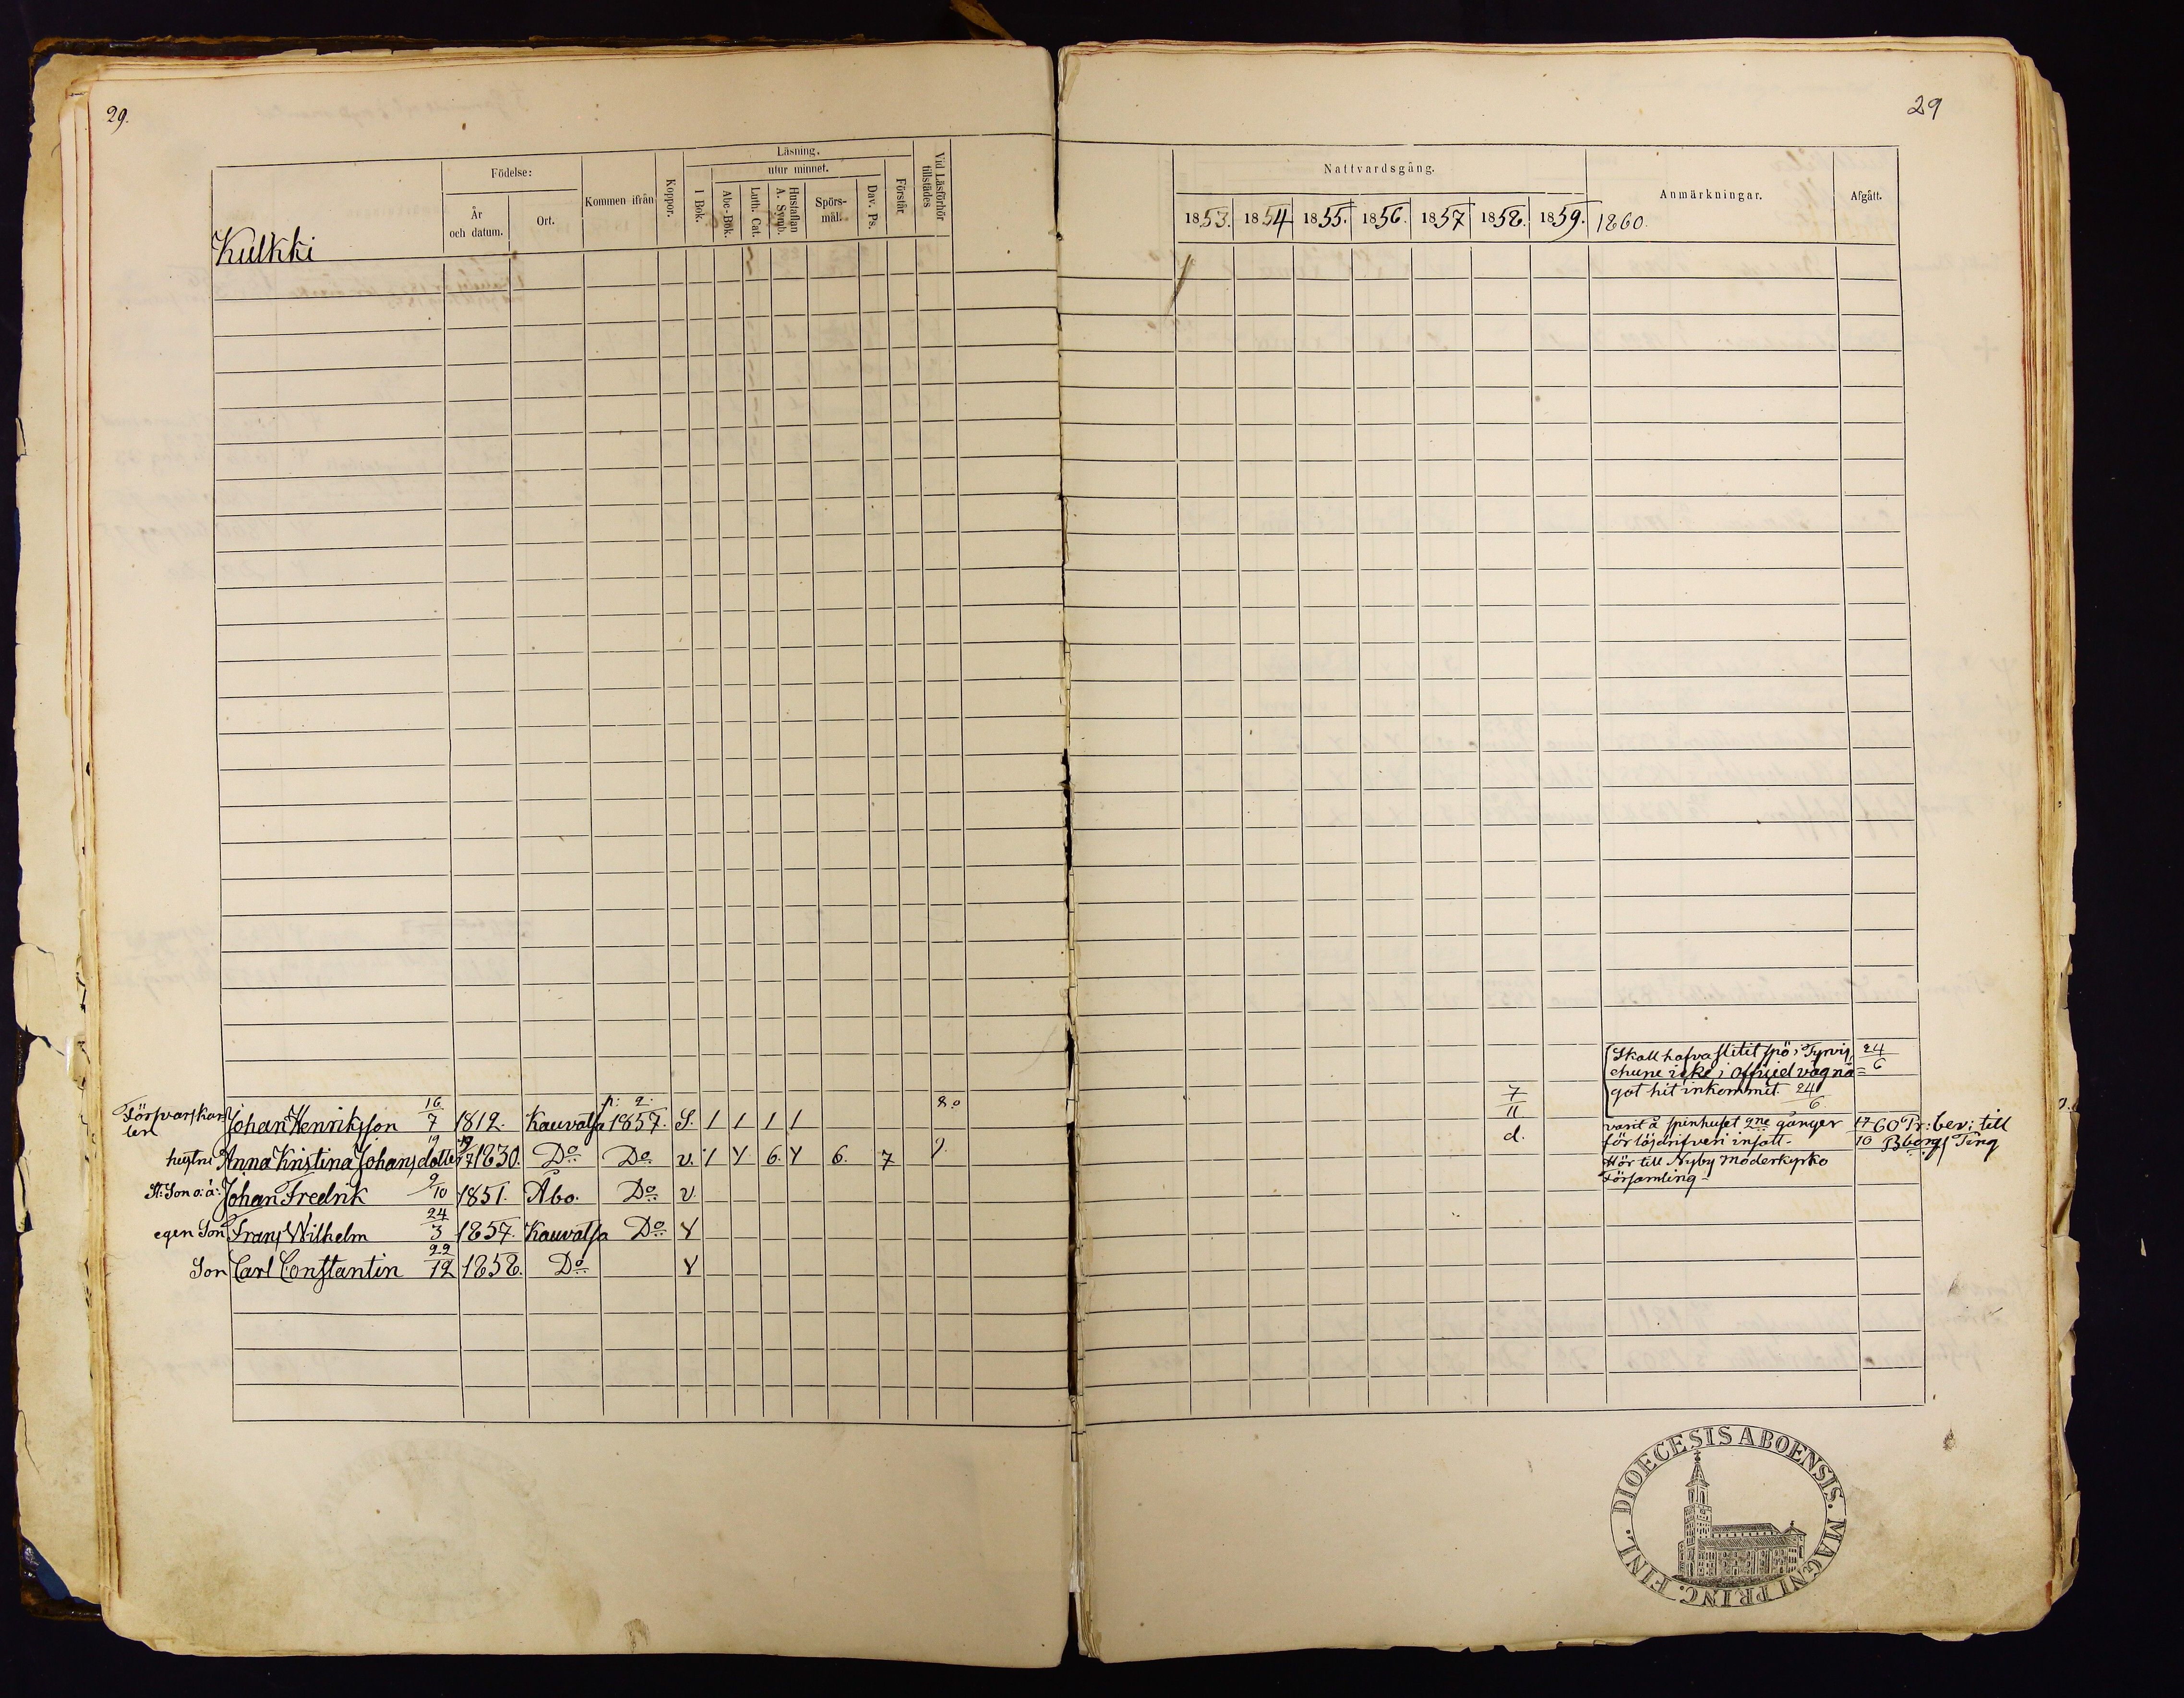 29.
29
Läsning.
Födelse:
utur minnet.
Kommen ifrån
Koppor.
Vid Läsförhör tillstädes
År och datum.
Ort.
I Bok.
Abc-Bok.
Luth. Cat.
Hustaflan A. Symb.
Spörs-mål.
Dav. Ps.
Förstår.
Nattvardsgång.
Anmärkningar.
Afgått.
1853. 1854 1855. 1856. 1857 1858. 1859. 1860.
Kulkki
Skall hafva slitit spö i Tyrvis 24/6
got hit inkommit. 24/6
Försvarskarl Johan Henriksson 16/7 1812. Kauvatsa p: 2. 1857. S. 1 1 1 1 8.0 7/11
varit å spinhuset 2ne gånger 17/10 60 Pr: bev: till
för lösdrifveri insatt. Bborgs Ting
hustru Anna Kristina Johansdotter 19/7 1830. Do Do v. Y 6. Y 6. 7 d.
Hör till Nyby Moderkyrko
Församling
St: Son o: ä: Johan Fredrik 9/10 1851. Åbo. Do v.
egen Son Frans Wilhelm 24/3 1857. Kauvatsa Do Y
Son Carl Constantin 22/12 1858. Do Y
DIOECESIS ABOENSIS. MAGNI PRINC. FINL.